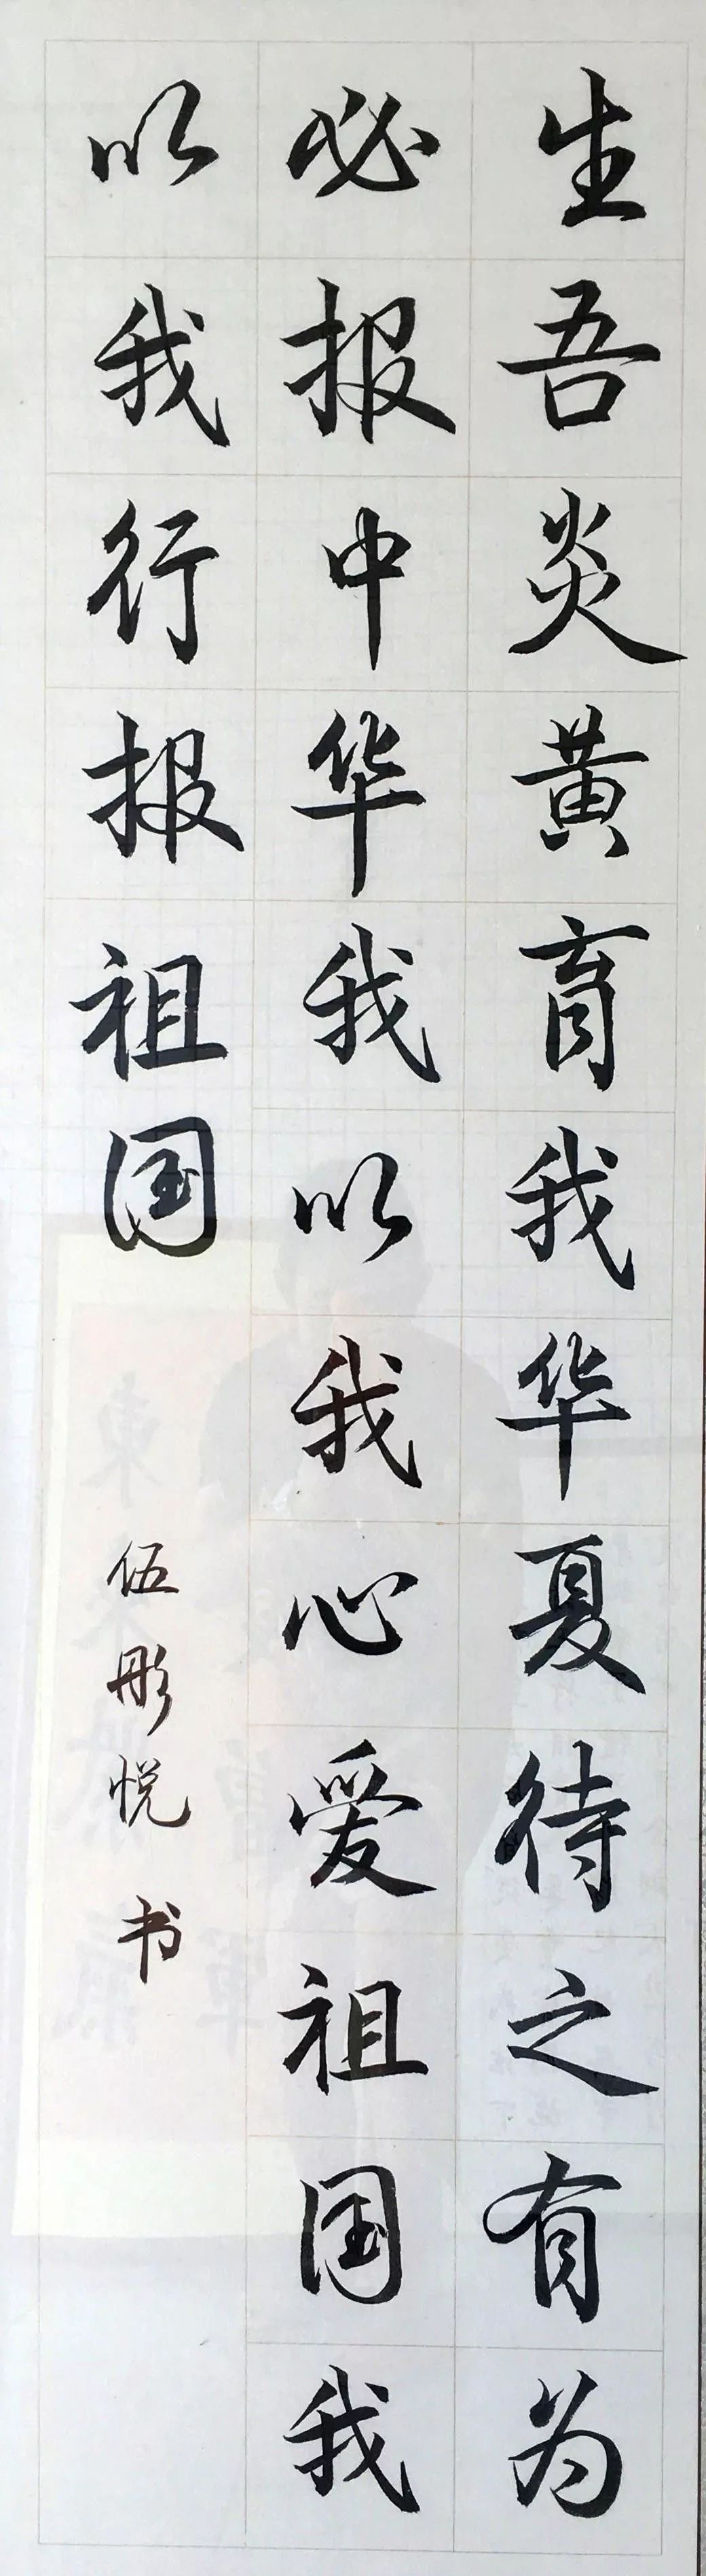 生吾炎黄育我华夏待之有为
必报中华我以我心爱祖国我
以我行报祖国
伍彤悦书